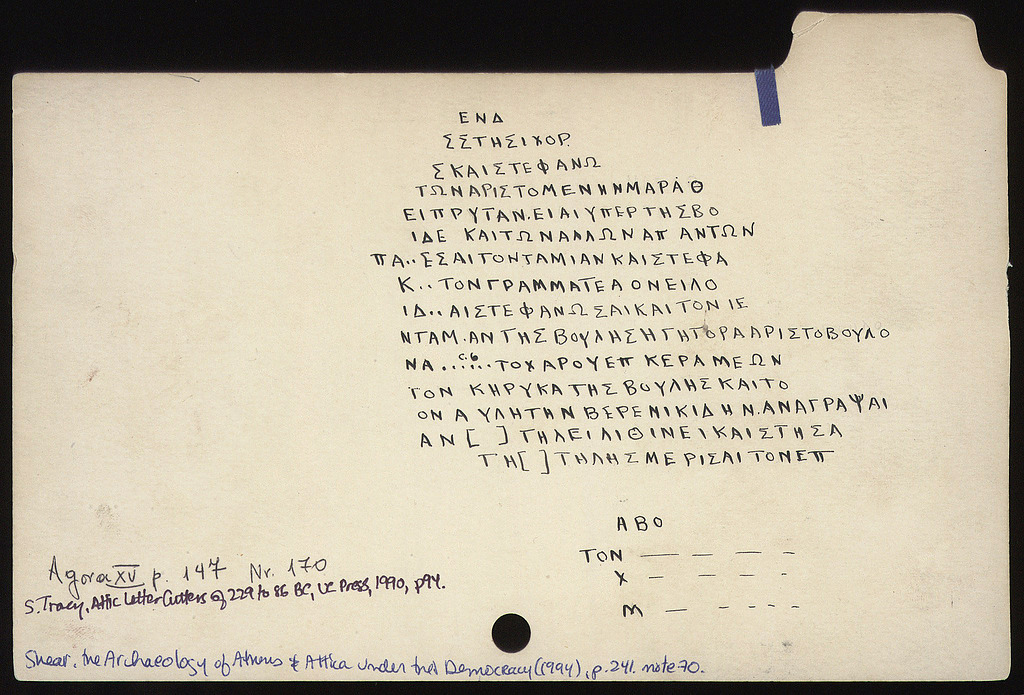 ΕΝΔ
ΣΣΤΗΣΙΧΟΡ.
ΣΚΑΙΣΤΕΦΑΝΩ
ΤΩΝΑΡΙΣΤΟΜΕΝΗΝΜΑΡΑΘ
ΕΙΠΡΥΤΑΝ.ΕΙΑΙΥΠΕΡΤΗΣΒΟ
ΙΔΕ ΚΑΙΤΩΝΑΛΛΩΝΑΠΑΝΤΩΝ
ΠΑ..ΕΣΑΙΤΟΝΤΑΜΙΑΝΚΑΙΣΤΕΦΑ
Κ..ΤΟΝΓΡΑΜΜΑΤΕΑΟΝΕΙΛΟ
ΙΔ..ΑΙΣΤΕΦΑΝΩΣΑΙΚΑΙΤΟΝΙΕ
ΝΤΑΜ.ΑΝΤΗΣΒΟΥΛΗΣΗΓΗΤΟΡΑΑΡΙΣΤΟΒΟΥΛΟ
ΝΑ...c.6...ΤΟΧΑΡΟΥΕΠ ΚΕΡΑΜΕΩΝ
ΤΟΝ ΚΗΡΥΚΑΤΗΣΒΟΥΛΗΣΚΑΙΤΟ
ΟΝΑΥΛΗΤΗΝΒΕΡΕΝΙΚΙΔΗΝ.ΑΝΑΓΡΑΨΑΙ
ΑΝ[ ]ΤΗΛΕΙΛΙΘΙΝΕΙΚΑΙΣΤΗΣΑ
ΤΗ[ ]ΤΗΛΗΣΜΕΡΙΣΑΙΤΟΝΕΠ
ΗΒΟ
ΤΟΝ — — — -
Χ — — — -
Μ — - - - -
Agora XV p. 147 Nr. 170
S. Tracy, Attic Letter Cutters of 229 to 86 BC, UC Press, 1990, p94.
Shear, the Archaeology of Athens & Attica under the Democracy (1994), p. 241. note 70.